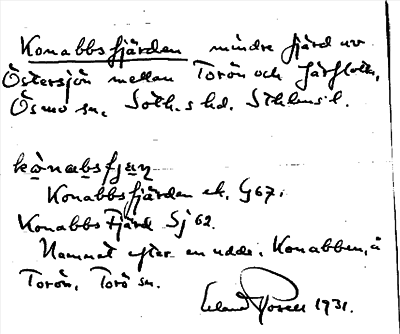 Konabbsfjärden mindre fjärd av
Östersjön mellan Torön och Järflotta,
Ösmo sn, Soth.s hd. Sthlms l.
kònabsfjan
Konabbsfjärden ek. G67.
Konabbs Fjärd Sj 62.
Namnet efter en udde, Konabben, å
Torön, Torö sn.
1931.